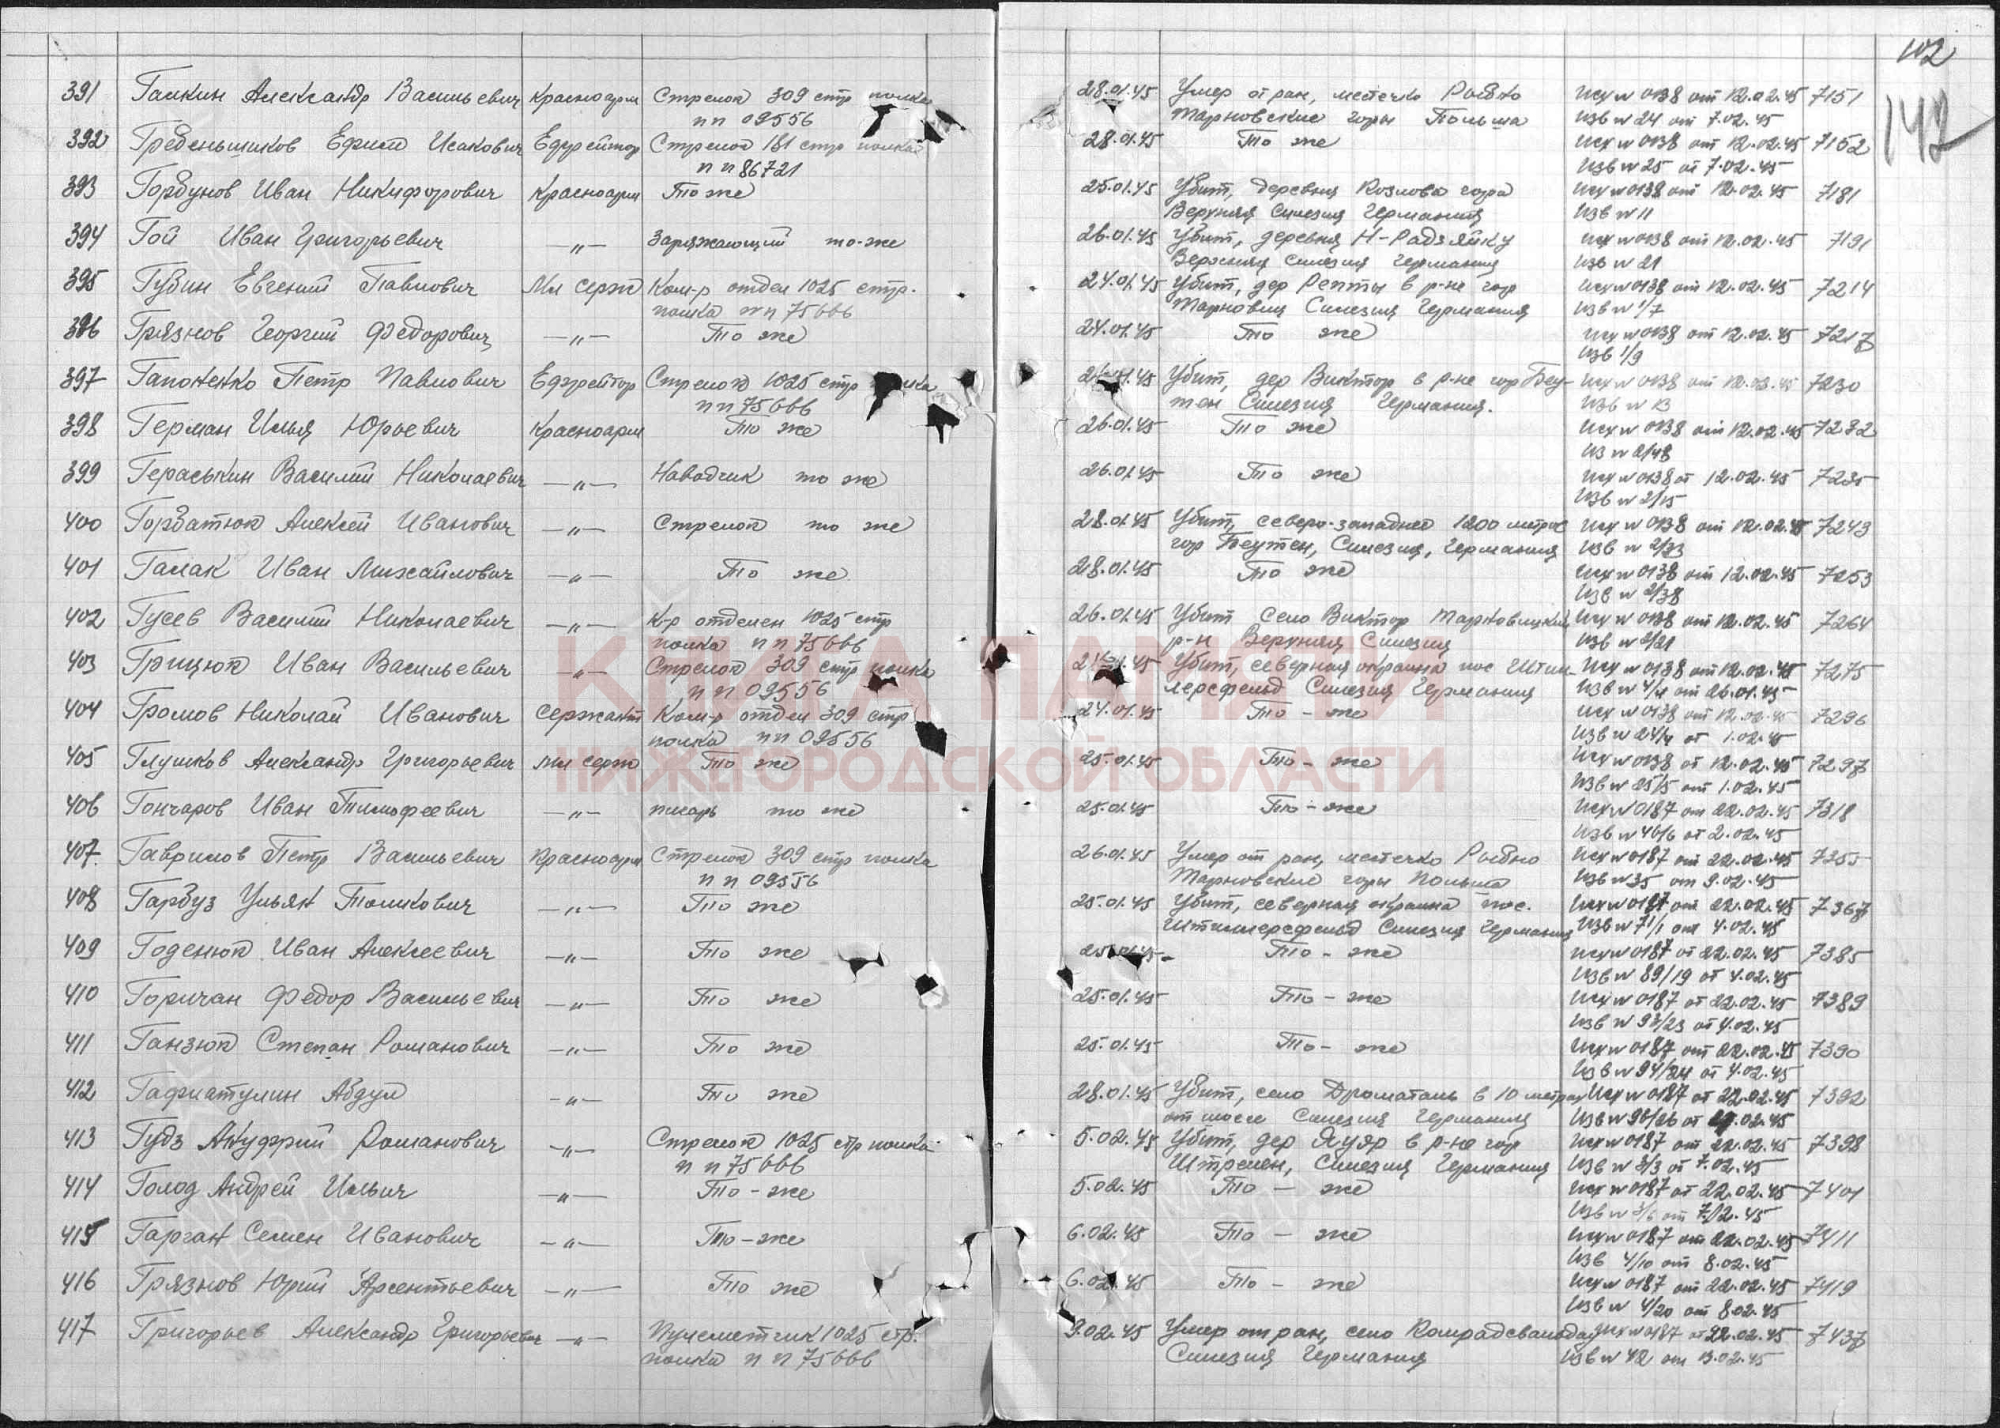 102
142
391 Галкин Александр Васильевич красноарм Стрелок 309 стр полка 28.01.45 Умер от ран, местечко Рыбно исх №0138 от 12.02.45 7151
пп 09556 Тарновские горы Польша изв №24 от 7.02.45
392 Гребенщиков Ефим Исакович Ефрейтор Стрелок 181 стр полка 28.01.45 То же исх №0138 от 12.02.45 7162
пп 86721 изв №25 от 7.02.45
393 Горбунов Иван Никифорович красноарм То же 25.01.45 Убит, деревня Козлова гора исх №0138 от 12.02.45 7181
Верхняя Силезия Германия изв №11
394 Гой Иван Григорьевич —„— Заряжающий то-же 26.01.45 Убит, деревня Н-Радзяйку исх №0138 от 12.02.45 7191
Верхняя Силезия Германия изв №21
395 Губин Евгений Павлович Мл серж Ком-р отдел 1025 стр. 24.01.45 Убит, дер Репты в р-не гор исх №0138 от 12.02.45 7214
полка пп 75666 Тарновиц Силезия Германия изв №1/7
396 Грязнов Георгий Федорович —„— То же 24.01.45 То же исх №0138 от 12.02.45 7217
изв 1/9
397 Гапоненко Петр Павлович Ефрейтор Стрелок 1025 стр полка Убит, дер Виктор в р-не гор Беу- исх №0138 от 12.02.45 7230
пп 75666 тен Силезия Германия. изв №13
398 Герман Илья Юрьевич красноарм То же 26.01.45 То же исх №0138 от 12.02.45 7232
из №2/48
399 Гераськин Василий Николаевич —„— Наводчик то же 26.01.45 То же исх №0138 от 12.02.45 7235
изв №2/15
400 Горбатюк Алексей Иванович —„— Стрелок то же 28.01.45 Убит, северо-западнее 1200 метров исх №0138 от 12.02.45 7243
гор Беутен, Силезия, Германия изв №2/33
401 Галак Иван Михайлович —„— То же 28.01.45 То же исх №0138 от 12.02.45 7253
изв №2/38
402 Гусев Василий Николаевич —„— К-р отделен 1025 стр 26.01.45 Убит село Виктор Тарновицкий исх №0138 от 12.02.45 7264
полка пп 75666 р-н Верхняя Силезия изв №2/21
403 Грицюк Иван Васильевич —„— Стрелок 309 стр полка Убит, северная окраина пос Штил- исх №0138 от 12.02.45 7275
пп 09556 лерсфельд Силезия Германия изв №4/4 от 26.01.45
404 Громов Николай Иванович сержант Ком-р отдел 309 стр 24.01.45 То-же исх №0138 от 12.02.45 7296
полка пп 09556 изв №24/4 от 1.02.45
405 Глушков Александр Григорьевич мл серж То же 25.01.45 То-же исх №0138 от 12.02.45 7297
изв №25/5 от 1.02.45
406 Гончаров Иван Тимофеевич —„— писарь то же 25.01.45 То-же исх №0187 от 22.02.45 7318
изв №46/6 от 2.02.45
407. Гаврилов Петр Васильевич красноарм Стрелок 309 стр полка 26.01.45 Умер от ран, местечко Рыбно исх №0187 от 22.02.45 7355
пп 09556 Тарновские горы Польша изв №35 от 9.02.45
408 Гарбуз Ульян Толикович —„— То же 25.01.45 Убит, северная окраина пос. исх №0187 от 22.02.45 7367
Штиллерсфельд Силезия Германия изв №71/1 от 4.02.45
409 Годенюк Иван Алексеевич —„— То же 25.01.45 То-же исх №0187 от 22.02.45 7385
изв №89/19 от 4.02.45
410 Горичан Федор Васильевич —„— То же 25.01.45 То-же исх №0187 от 22.02.45 7389
изв №93/23 от 4.02.45
411 Ганзюк Степан Романович —„— То же 25.01.45 То-же исх №0187 от 22.02.45 7390
изв №94/24 от 4.02.45
412 Гафиатулин Абдул —„— То же 28.01.45 Убит, село Драматаль в 10 метрах исх №0187 от 22.02.45 7392
от шоссе Силезия Германия изв №96/26 от 02.45
413 Гудз Ануфрий Романович —„— Стрелок 1025 стр полка 5.02.45 Убит, дер Яуэр в р-не гор исх №0187 от 22.02.45 7398
пп 75666 Штрелен, Силезия Германия изв №3/3 от 7.02.45
414 Голод Андрей Ильич —„— То-же 5.02.45 То-же исх №0187 от 22.02.45 7401
изв №3/6 от 7.02.45
415 Гарган Семен Иванович —„— То-же 6.02.45 То-же исх №0187 от 22.02.45 7411
изв 4/10 от 8.02.45
416 Грязнов Юрий Арсентьевич —„— То же 6.02.45 То-же исх №0187 от 22.02.45 7419
изв №4/20 от 8.02.45
417 Григорьев Александр Григорьевич —„— Пулеметчик 1025 стр. 9.02.45 Умер от ран, село Конрадсвальдау исх №0187 от 22.02.45 7437
полка пп 75666 Силезия Германия изв №42 от 13.02.45
КНИГА ПАМЯТИ
НИЖЕГОРОДСКОЙ ОБЛАСТИ